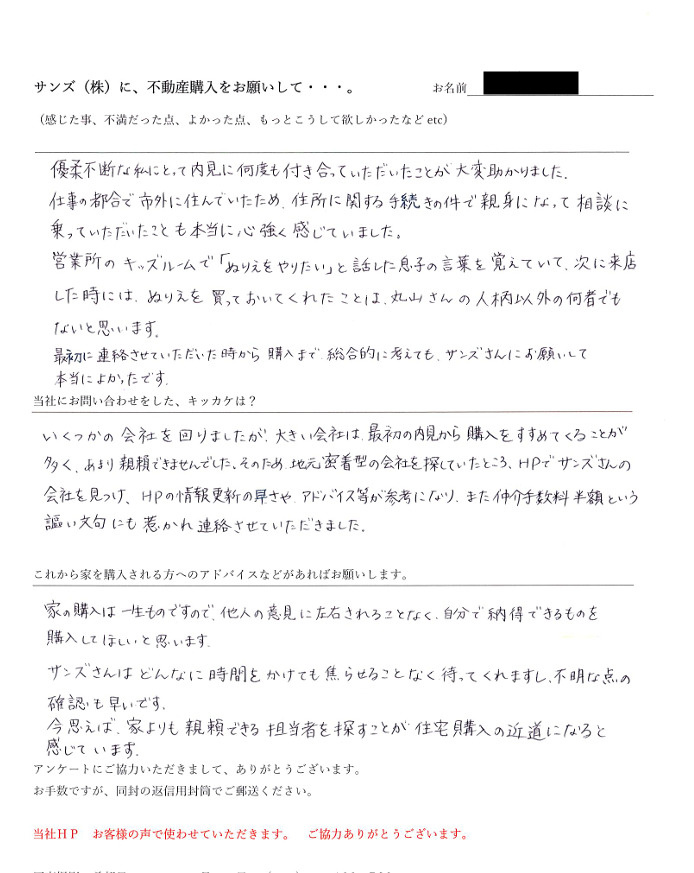 サンズ（株）に、不動産購入をお願いして・・・。
お名前
（感じた事、不満だった点、よかった点、もっとこうして欲しかったなど etc）
優柔不断な私にとって内見に何度も付き合っていただいたことが大変助かりました。
仕事の都合で市外に住んでいたため、住所に関する手続きの件で親身になって相談に
乗っていただいたことも本当に心強く感じていました。
営業所のキッズルームで「ぬりえをやりたい」と話した息子の言葉を覚えていて、次に来店
した時には、ぬりえを買っておいてくれたことは、丸山さんの人柄以外の何者でも
ないと思います。
最初に連絡させていただいた時から購入まで総合的に考えても、サンズさんにお願いして
本当によかったです。
当社にお問い合わせをした、キッカケは？
いくつかの会社を回りましたが、大きい会社は、最初の内見から購入をすすめてくることが
多く、あまり親頼できませんでした、そのため、地元密着型の会社を探していたところ、HPでサンズさんの
会社を見つけ、HPの情報更新の早さや、アドバイス等が参考になり、また仲介手数料半額という
謳い文句にも惹かれ連絡させていただきました。
これから家を購入される方へのアドバイスなどがあればお願いします。
家の購入は一生ものですので、他人の意見に左右されることなく、自分で納得できるものを
購入してほしいと思います。
サンズさんはどんなに時間をかけても焦らせることなく待ってくれますし、不明な点の
確認も早いです。
今思えば、家よりも親頼できる担当者を探すことが住宅購入の近道になると
感じています。
アンケートにご協力いただきまして、ありがとうございます。
お手数ですが、同封の返信用封筒でご郵送ください。
当社ＨＰ　お客様の声で使わせていただきます。　ご協力ありがとうございます。